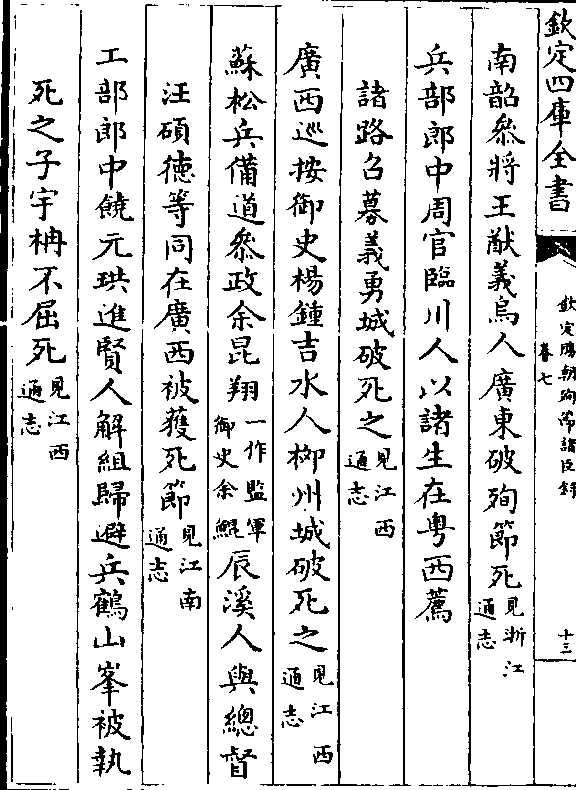 欽定四庫全書
欽定勝朝殉節諸臣錄
卷七
十三
南韶叅將王猷義烏人廣東破殉節死見浙江通志
兵部郎中周官臨川人以諸生在粤西薦
諸路召募義勇城破死之見江西通志
廣西巡按御史楊鍾吉水人桞州城破死之見江西通志
蘇松兵備道叅政余昆翔一作監軍御史余鯤辰溪人與總督
汪碩徳等同在廣西被獲死節見江南通志
工部郎中饒元珙進賢人解組歸避兵鶴山峯被執
死之子宇柟不屈死見江西通志